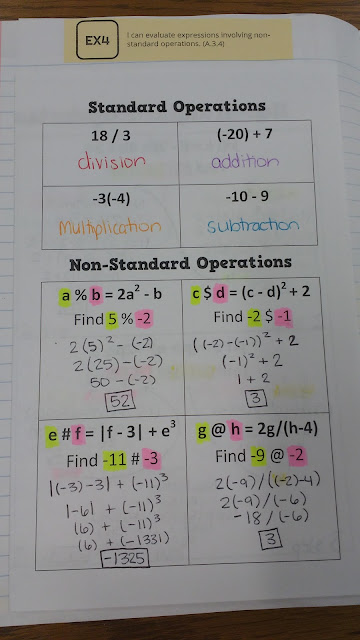 EX4
I can evaluate expressions involving non-
standard operations. (A.3.4)
Standard Operations
18 / 3
division
(-20) + 7
addition
-3(-4)
Multiplication
-10 - 9
subtraction
Non-Standard Operations
a % b = 2a² - b
Find 5 % -2
2(5)² - (-2)
2(25) - (-2)
50 - (-2)
52
c $ d = (c - d)² + 2
Find -2 $ -1
((-2) - (-1))² + 2
(-1)² + 2
1 + 2
3
e # f = |f - 3| + e³
Find -11 # -3
|(-3) - 3| + (-11)³
|-6| + (-11)³
(6) + (-11)³
(6) + (-1331)
-1325
g @ h = 2g/(h-4)
Find -9 @ -2
2(-9) / ((-2) - 4)
2(-9) / (-6)
-18 / (-6)
3